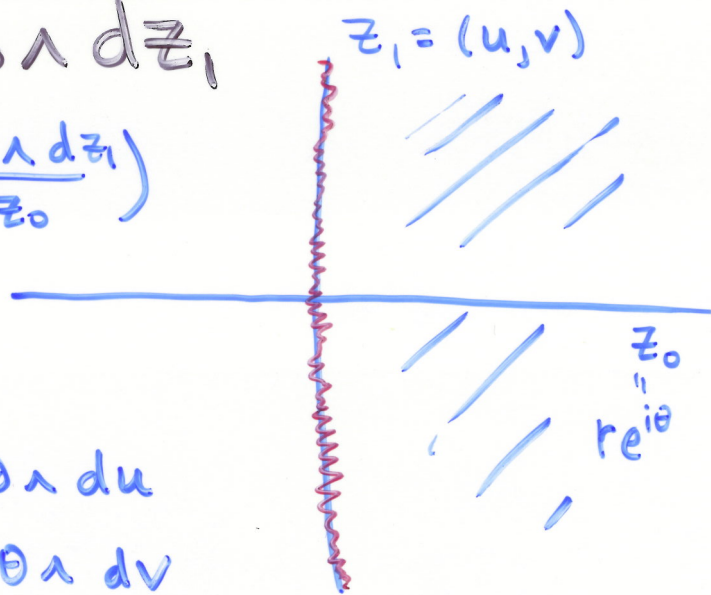 ∧ dz₁
z₁ = (u,v)
∧ dz₁)
z₀
z₀
"
re^{iθ}
∧ du
θ ∧ dv